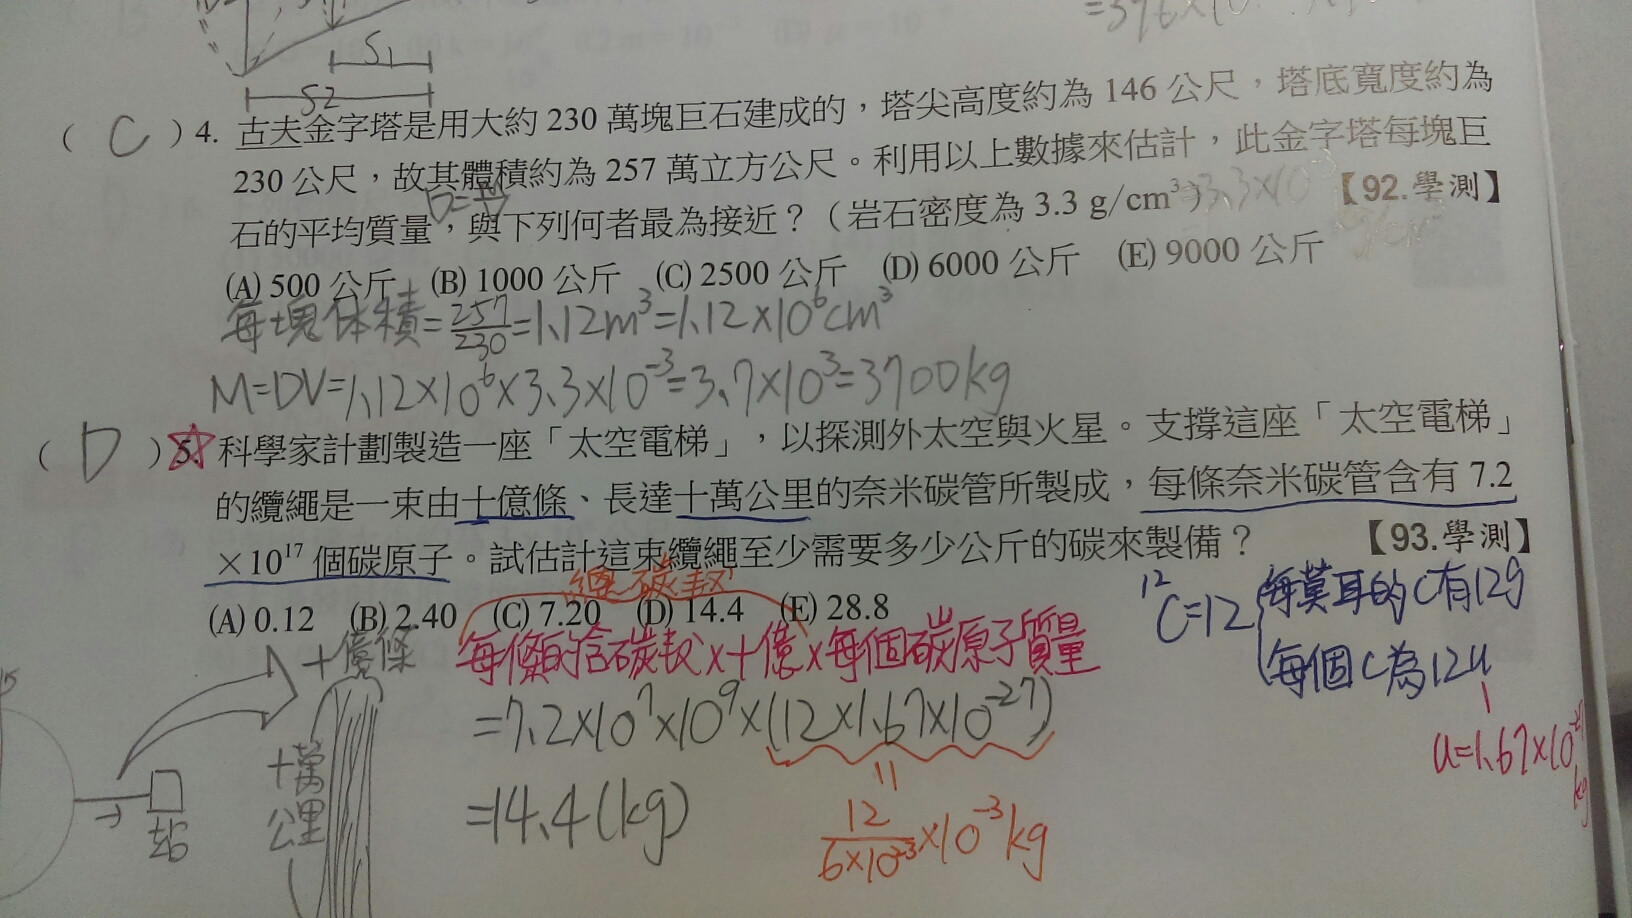 S1
S2
=396×10
( C ) 4. 古夫金字塔是用大約 230 萬塊巨石建成的，塔尖高度約為 146 公尺，塔底寬度約為
230 公尺，故其體積約為 257 萬立方公尺。利用以上數據來估計，此金字塔每塊巨
石的平均質量，與下列何者最為接近？（岩石密度為 3.3 g/cm³） 【92.學測】
D=M/V
3.3×10⁻³
(A) 500 公斤 (B) 1000 公斤 (C) 2500 公斤 (D) 6000 公斤 (E) 9000 公斤
每塊体積=257/230=1.12m³=1.12×10⁶cm³
M=DV=1.12×10⁶×3.3×10⁻³=3.7×10³=3700kg
( D ) 5. 科學家計劃製造一座「太空電梯」，以探測外太空與火星。支撐這座「太空電梯」
的纜繩是一束由十億條、長達十萬公里的奈米碳管所製成，每條奈米碳管含有 7.2
×10¹⁷ 個碳原子。試估計這束纜繩至少需要多少公斤的碳來製備？ 【93.學測】
總碳數
(A) 0.12 (B) 2.40 (C) 7.20 (D) 14.4 (E) 28.8
¹²C=12
每莫耳的C有12g
每個C為12u
u=1.67×10⁻²⁷kg
十億條
每條的含碳數×十億×每個碳原子質量
=7.2×10⁷×10⁹×(12×1.67×10⁻²⁷)
=14.4(kg)
12/6×10²³×10⁻³kg
十萬
公里
站